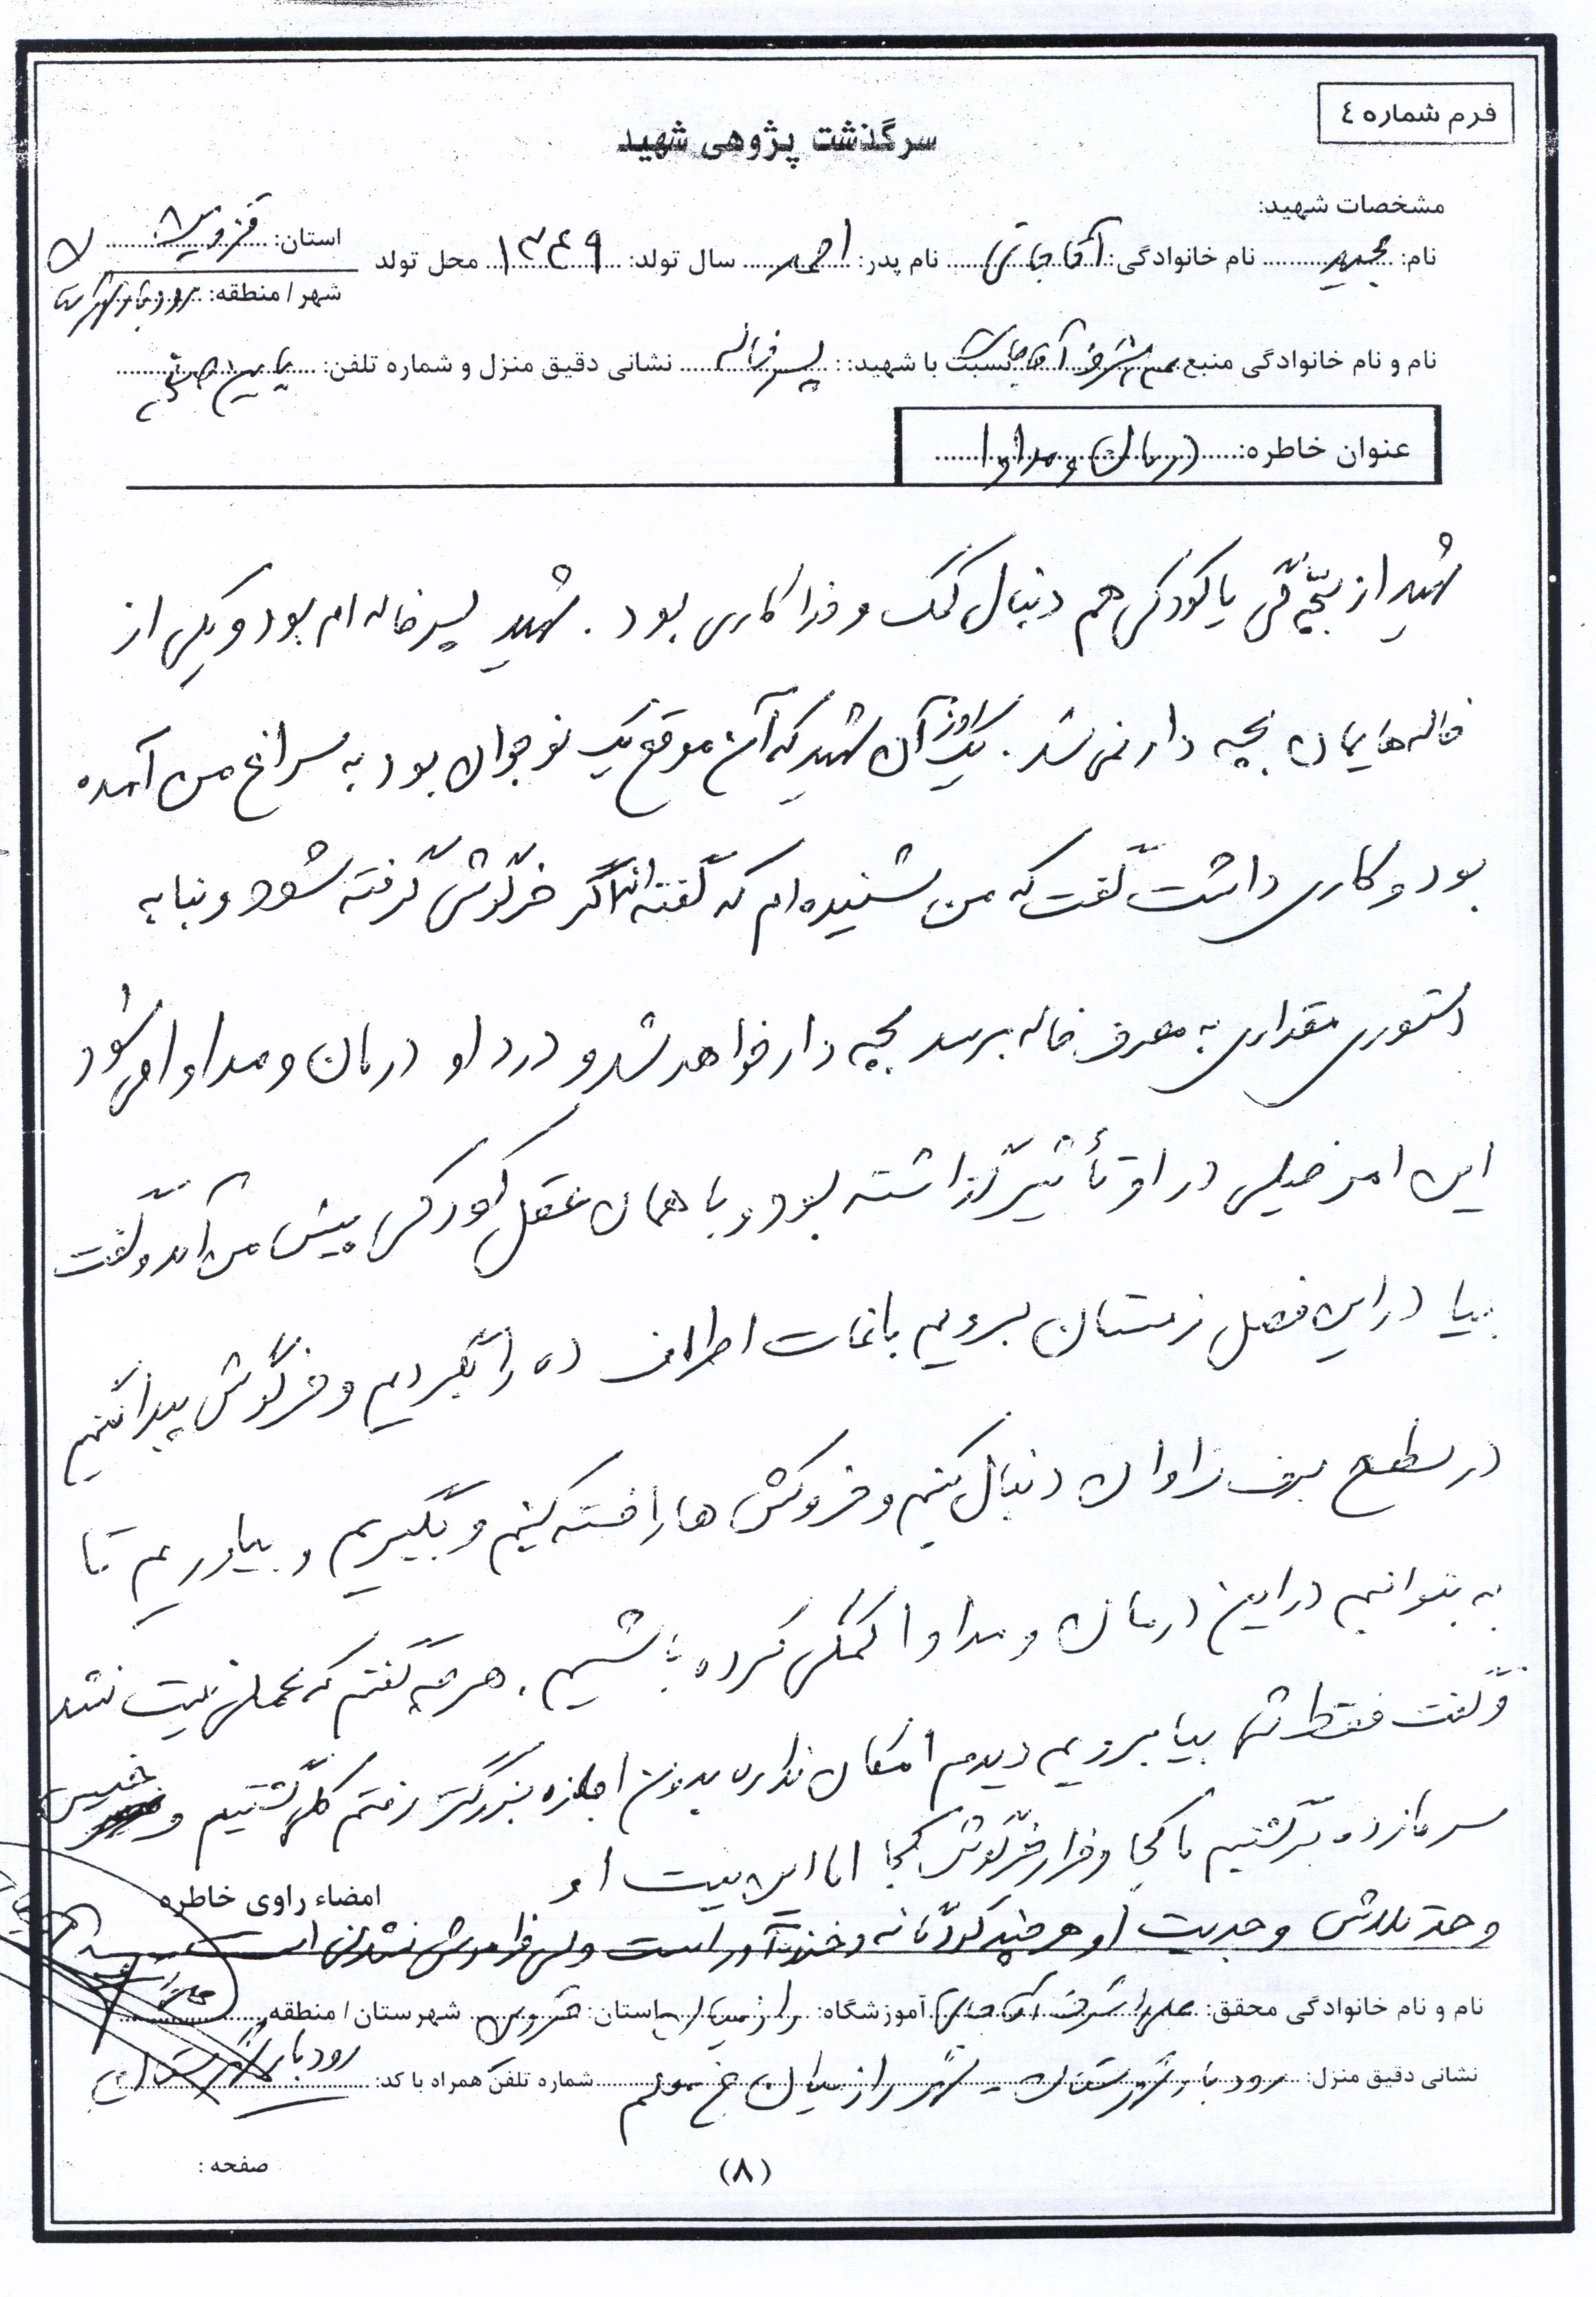 فرم شماره ٤
سرگذشت پژوهی شهید
مشخصات شهید:
نام: مجید نام خانوادگی: آقاجانی نام پدر: احمد سال تولد: ۱۳۴۹ محل تولد استان: قزوین
شهر / منطقه: رودبار شهرستان
نام و نام خانوادگی منبع: آقاجانی نسبت با شهید: پسرخاله نشانی دقیق منزل و شماره تلفن: پایین صفحه
عنوان خاطره: درمان و مداوا
شهید از بچّه‌گی یا کودکی هم دنبال کمک و فداکاری بود. شهید پسرخاله‌ام بود و یکی از
خاله‌هایمان بچه دار نمی‌شد. یک روز آن شهید که آن موقع یک نوجوان بود به سراغ من آمده
بود و کاری داشت گفت که من شنیده‌ام که گفته‌اند اگر خرگوش گرفته شود و بنا به
دستوری مقداری به مصرف خاله برسد بچه دار خواهد شد و درد او درمان و مداوا می‌شود
این امر خیلی در او تأثیر گذاشته بود و با همان عقل کودکی پیش من آمد و گفت
بیا در این فصل زمستان برویم باغات اطراف ده را بگردیم و خرگوش پیدا کنیم
در سطح برف فراوان دنبال کنیم و خرگوش ها را خسته کنیم و بگیریم و بیاوریم تا
به بتوانیم در این درمان و مداوا کمکی کرده باشیم. هر چه گفتم که عملی نیست نشد
و گفت فقط تو بیا برویم دیدم امکان نداره بدون اجازه بزرگتر رفتم کلی گشتیم و خیس
سرمازده برگشتیم ما کجا و فرار خرگوش کجا اما این نیت او
امضاء راوی خاطره
و حد تلاش و جدیت او هر چند کودکانه و خنده‌آور است ولی فراموش نشدنی است
نام و نام خانوادگی محقق: آقاجانی آموزشگاه: استان: قزوین شهرستان / منطقه: رودبار شهرستان
نشانی دقیق منزل: رودبار شهرستان - شهر رازمیان خ معلم شماره تلفن همراه با کد:
(۸)
صفحه :